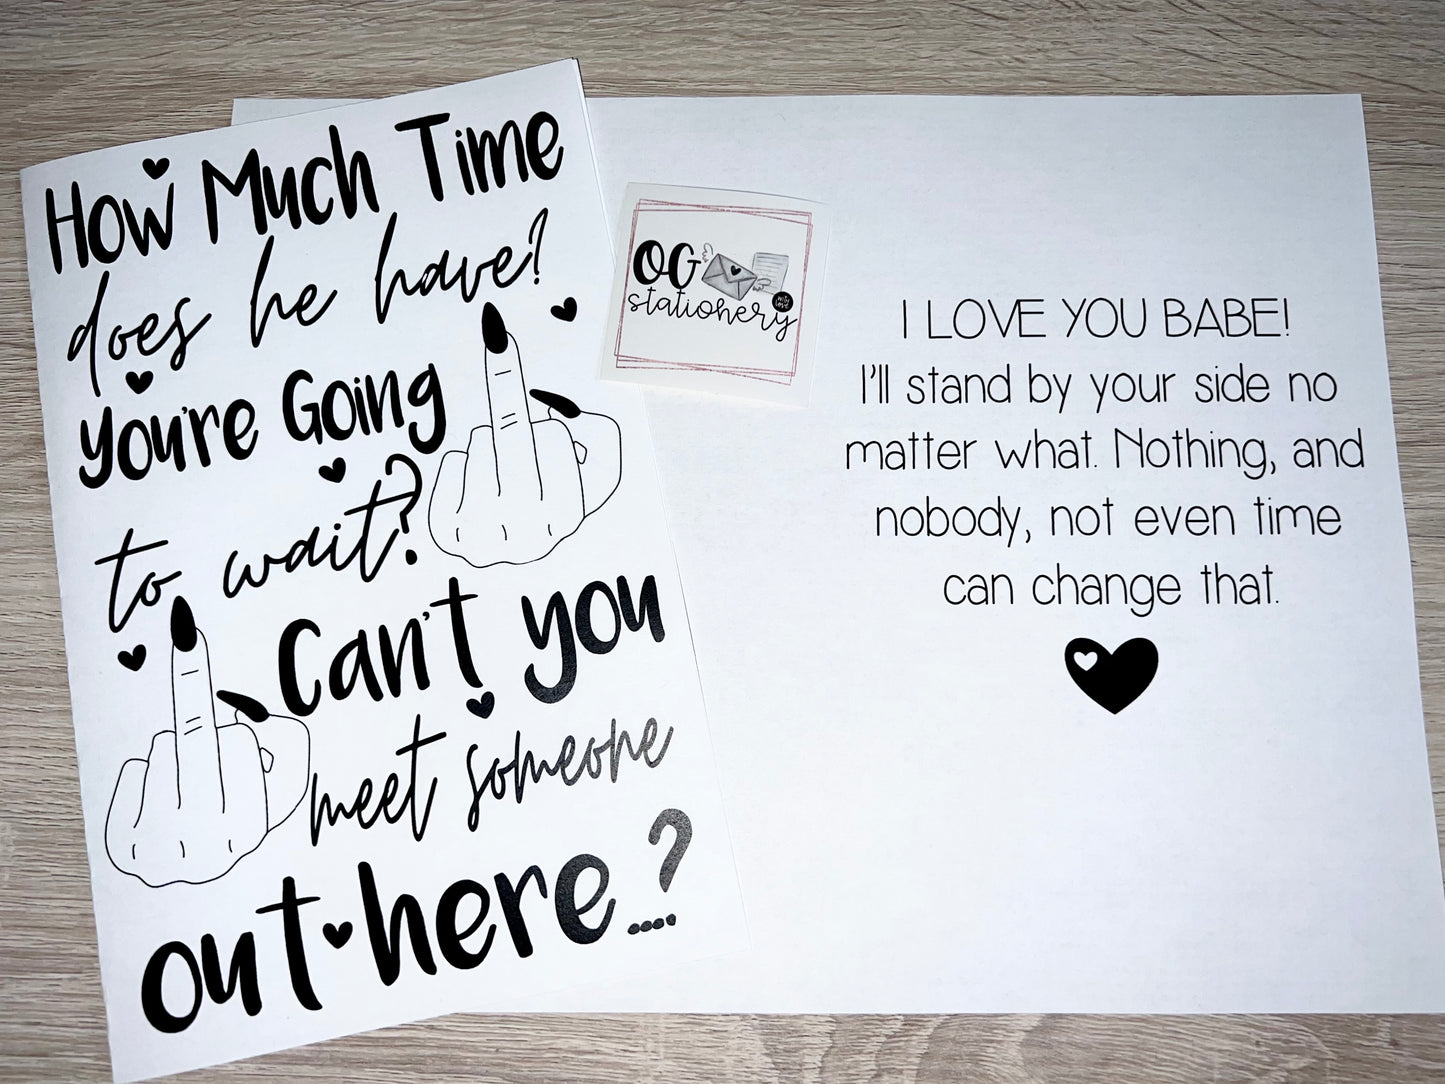 How Much Time
does he have?
you're Going
to wait?
Can't you
meet someone
out here....?
OG
stationery
with
love
I LOVE YOU BABE!
I'll stand by your side no
matter what. Nothing, and
nobody, not even time
can change that.